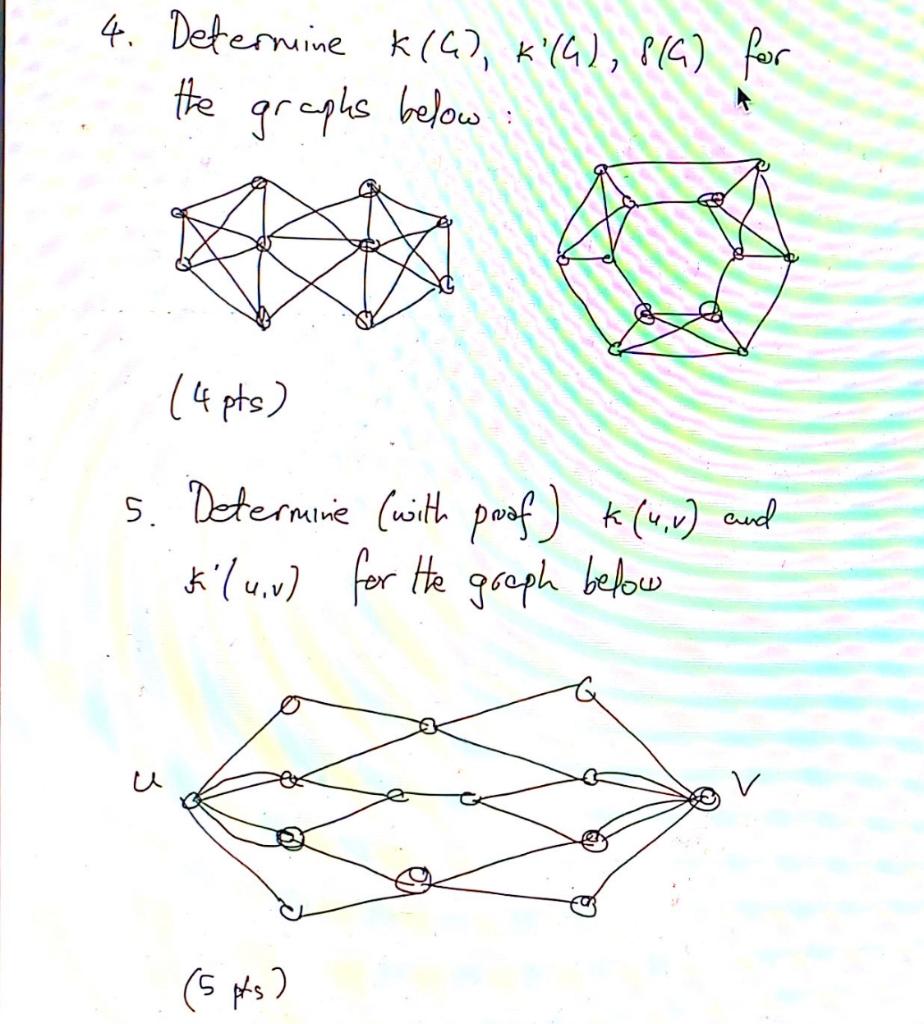 4. Determine κ(G), κ'(G), δ(G) for
the graphs below:
(4 pts)
5. Determine (with proof) κ(u,v) and
κ'(u,v) for the graph below
u
v
(5 pts)